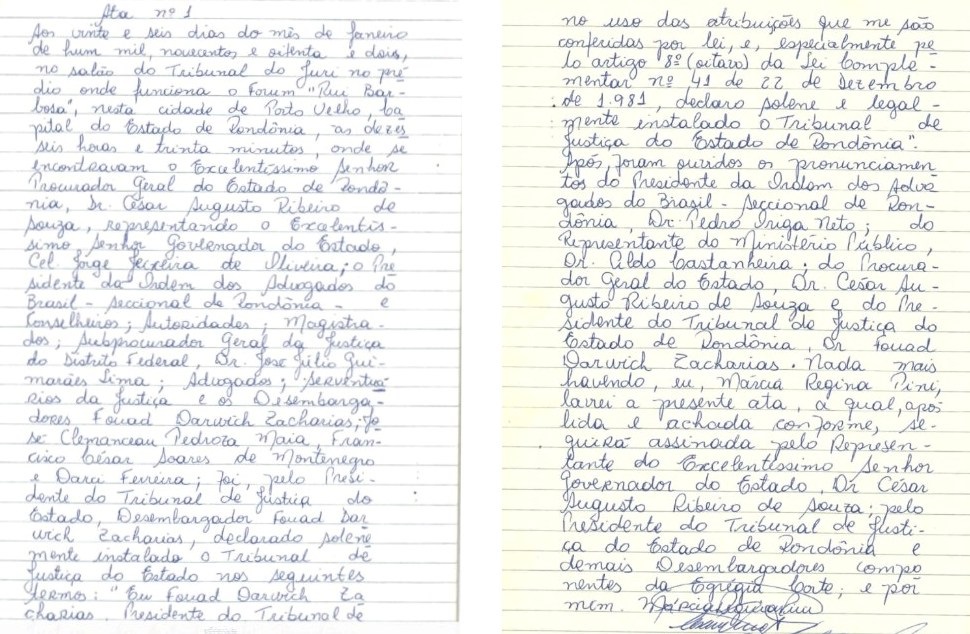 Ata nº 1
Aos vinte e seis dias do mês de Janeiro
de hum mil, novecentos e oitenta e dois,
no salão do Tribunal do Juri no pré
dio onde funciona o Forum "Rui Bar-
bosa", nesta cidade de Porto Velho, ca
pital do Estado de Rondônia, às dezes
seis horas e trinta minutos, onde se
encontravam o Excelentíssimo Senhor
Procurador Geral do Estado de Rondô-
nia, Dr. César Augusto Ribeiro de
Souza, representando o Excelentís-
simo Senhor Governador do Estado,
Cel. Jorge Teixeira de Oliveira; o Pre
sidente da Ordem dos Advogados do
Brasil - Seccional de Rondônia - e
Conselheiros; Autoridades; Magistra-
dos; Subprocurador Geral da Justiça
do Distrito Federal, Dr. José Júlio Gui
marães Lima; Advogados; Serventuá
rios da Justiça e os Desembarga-
dores Fouad Darwich Zacharias; Jo
sé Clemenceau Pedroza Maia, Fran-
cisco César Soares de Montenegro
e Darci Ferreira; foi, pelo Presi-
dente do Tribunal de Justiça do
Estado, Desembargador Fouad Dar
wich Zacharias, declarado solene
mente instalado o Tribunal de
Justiça do Estado nos seguintes
termos: "Eu Fouad Darwich Za
charias. Presidente do Tribunal de
no uso das atribuições que me são
conferidas por lei, e, especialmente pe
lo artigo 8º (oitavo) da Lei Comple-
mentar nº 41 de 22 de Dezembro
de 1.981, declaro solene e legal-
mente instalado o Tribunal de
Justiça do Estado de Rondônia".
Após, foram ouvidos os pronunciamen
tos do Presidente da Ordem dos Advo
gados do Brasil - Seccional de Ron-
dônia, Dr. Pedro Origa Neto; do
Representante do Ministério Público,
Dr. Aldo Castanheira; do Procura-
dor Geral do Estado, Dr. César Au-
gusto Ribeiro de Souza e do Pre-
sidente do Tribunal de Justiça do
Estado de Rondônia, Dr Fouad
Darwich Zacharias. Nada mais
havendo, eu, Márcia Regina Pini,
lavrei a presente ata, a qual, após
lida e achada conforme, se-
guirá assinada pelo Represen-
tante do Excelentíssimo Senhor
Governador do Estado, Dr César
Augusto Ribeiro de Souza; pelo
Presidente do Tribunal de Justi-
ça do Estado de Rondônia e
demais Desembargadores compo
nentes da Egrégia Corte; e por
mim. Márcia Regina Pini